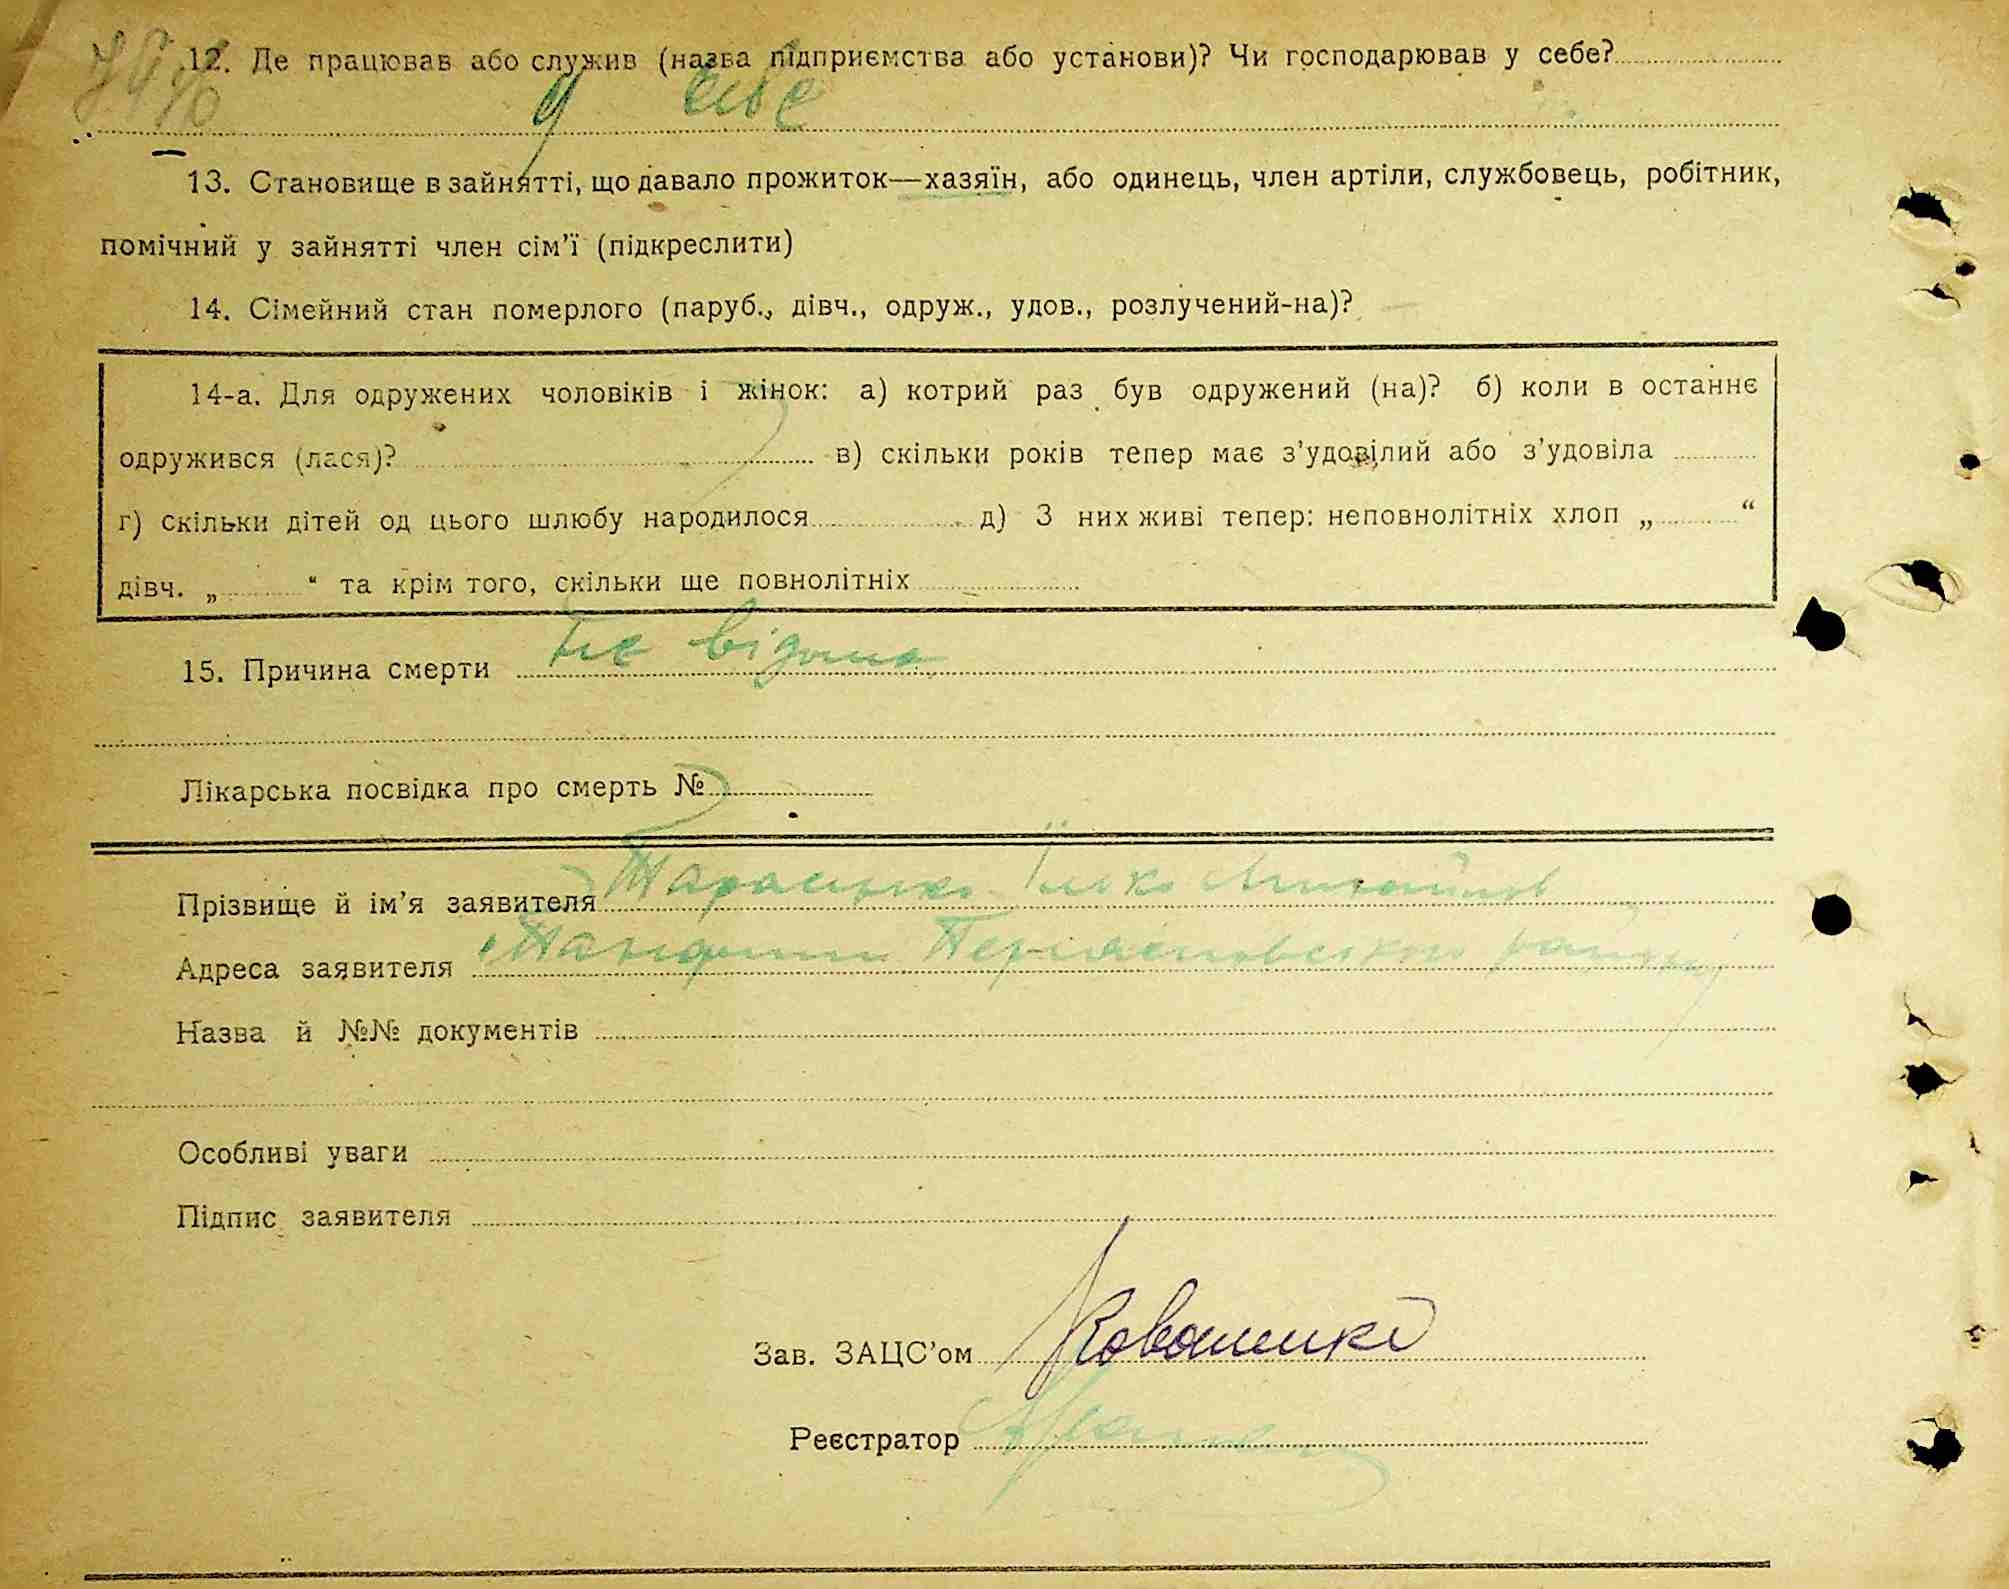 12. Де працював або служив (назва підприємства або установи)? Чи господарював у себе?
у себе
13. Становище в зайнятті, що давало прожиток—хазяїн, або одинець, член артіли, службовець, робітник,
помічний у зайнятті член сім’ї (підкреслити)
14. Сімейний стан померлого (паруб., дівч., одруж., удов., розлучений-на)?
14-а. Для одружених чоловіків і жінок: а) котрий раз був одружений (на)? б) коли в останнє
одружився (лася)? в) скільки років тепер має з’удовілий або з’удовіла
г) скільки дітей од цього шлюбу народилося д) З них живі тепер: неповнолітніх хлоп „ “
дівч. „ “ та крім того, скільки ще повнолітніх
15. Причина смерти не відома
Лікарська посвідка про смерть №
Прізвище й ім’я заявителя Тарасенко
Адреса заявителя району
Назва й №№ документів
Особливі уваги
Підпис заявителя
Зав. ЗАЦС’ом Коваленко
Реєстратор